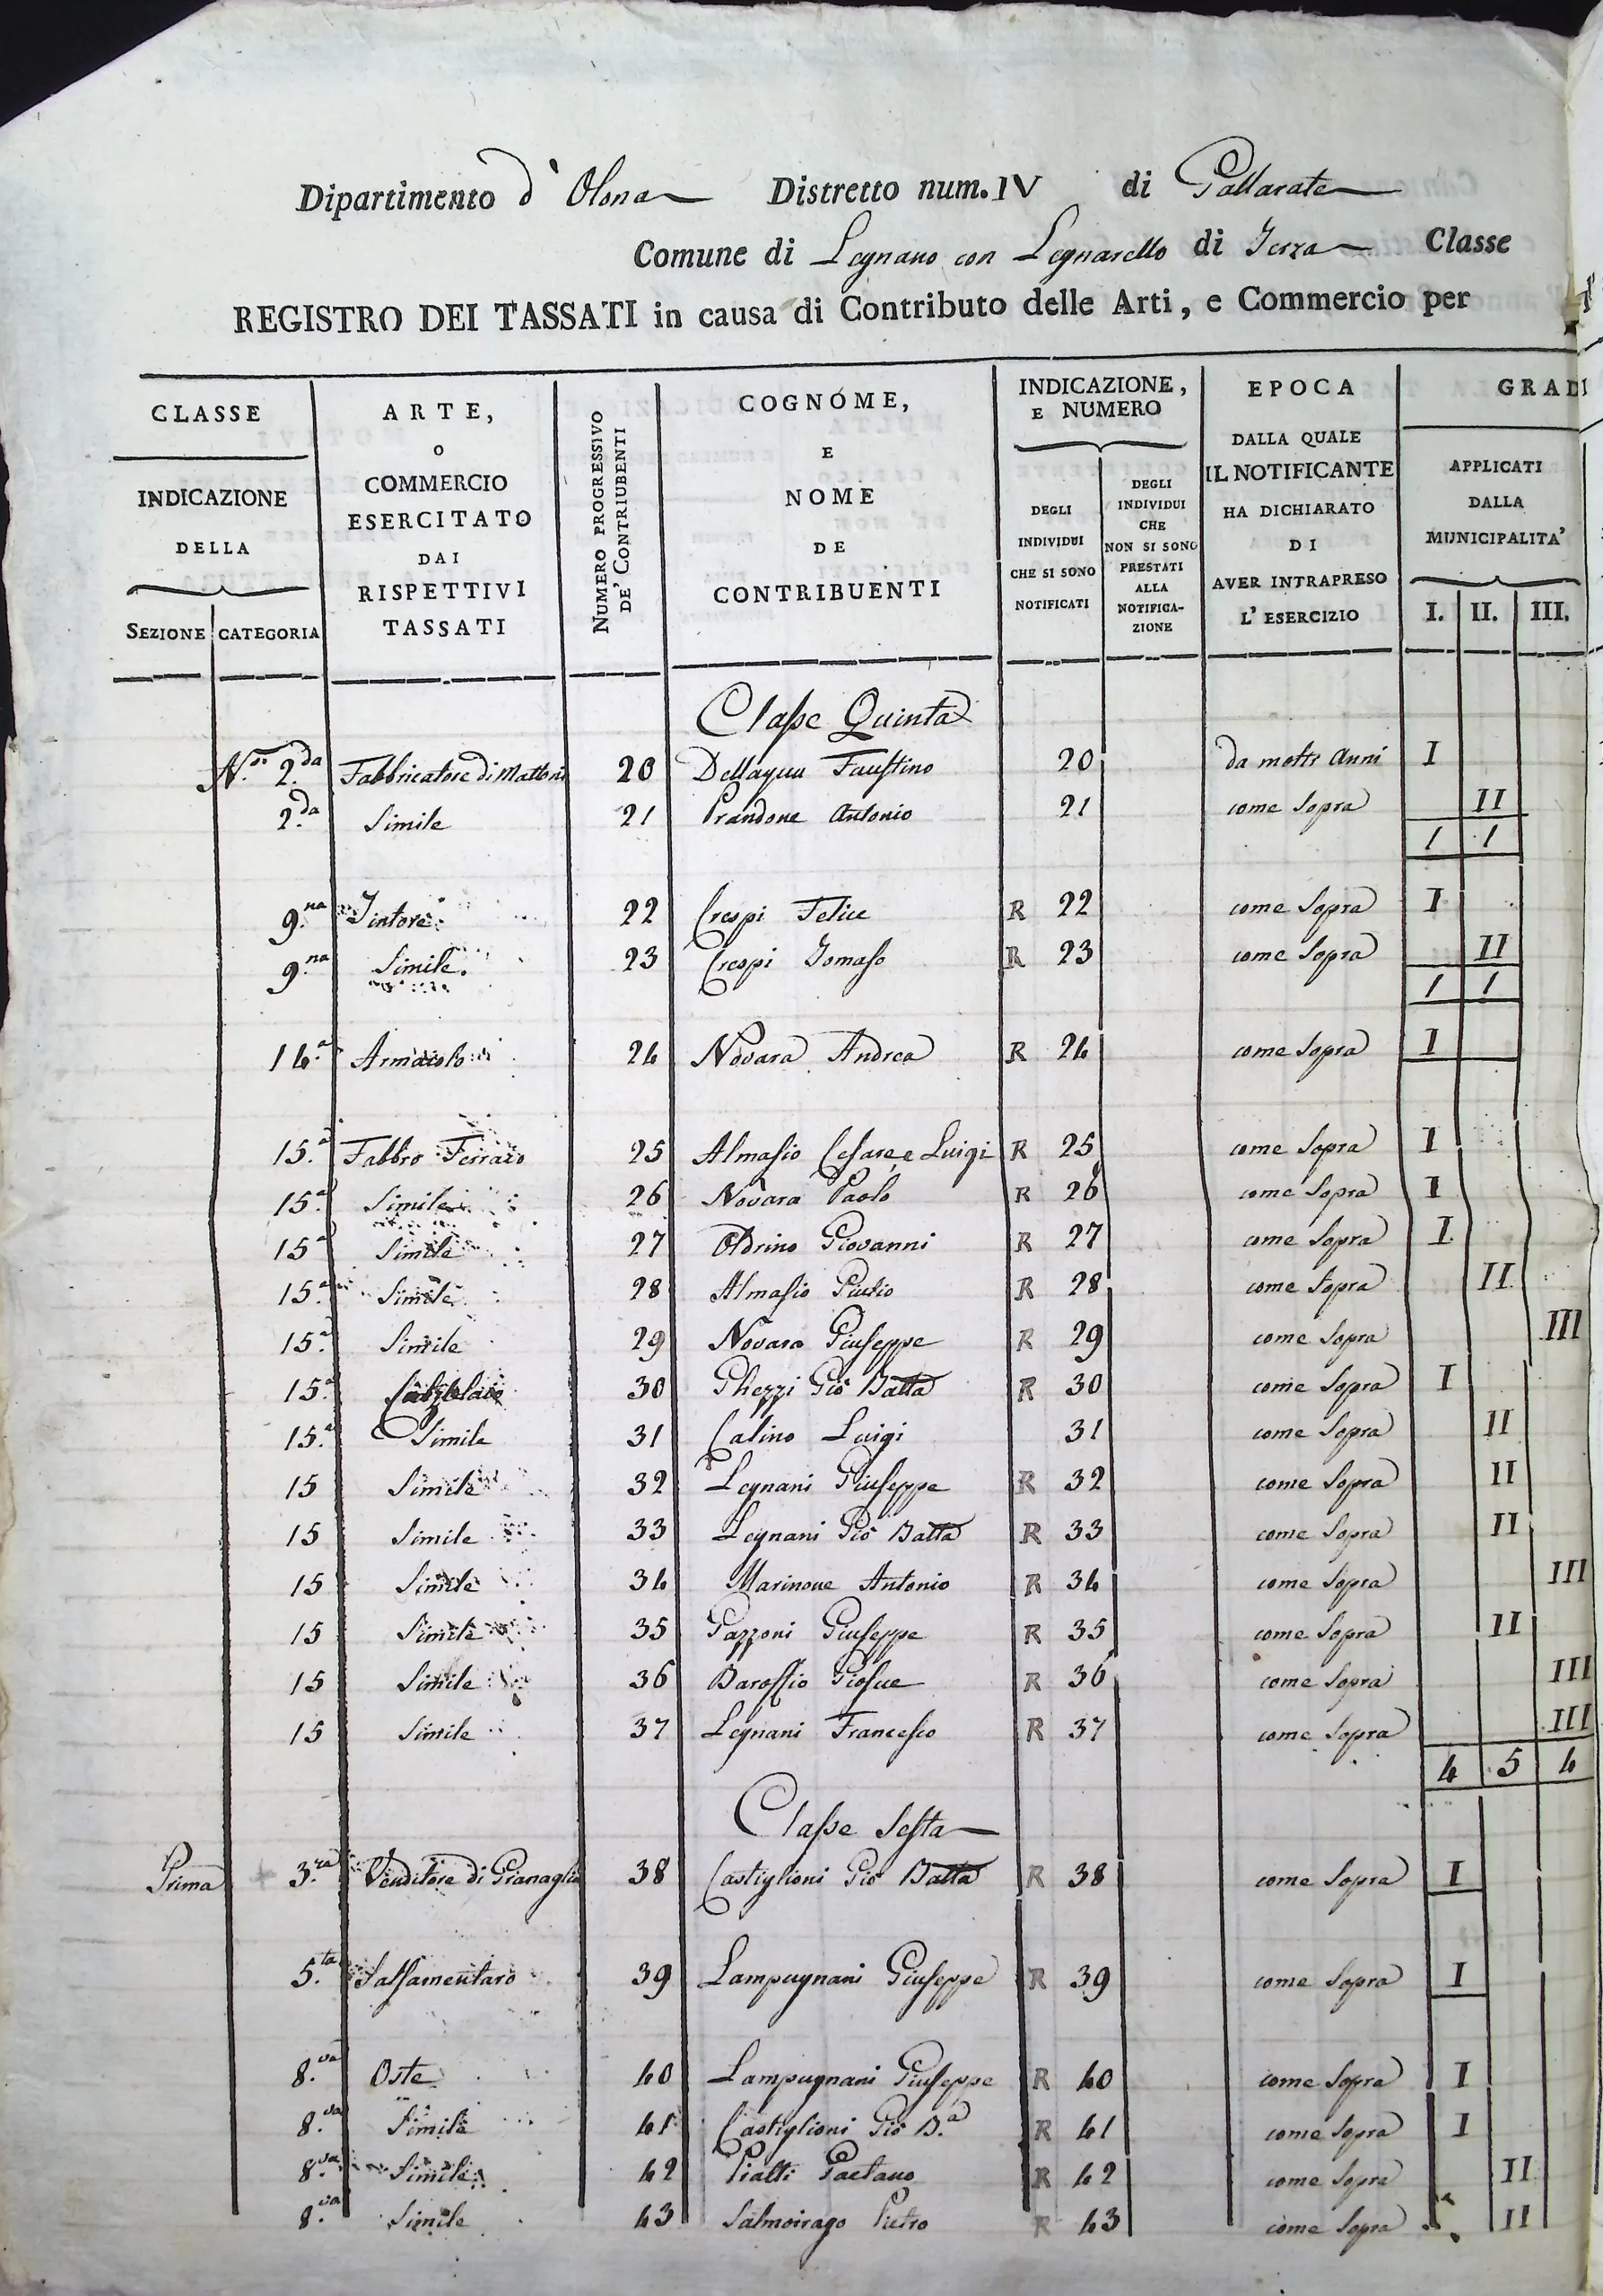 Dipartimento d'Olona Distretto num. IV di Gallarate
Comune di Legnano con Legnarello di Terza Classe
REGISTRO DEI TASSATI in causa di Contributo delle Arti, e Commercio per
CLASSE
INDICAZIONE
DELLA
SEZIONE CATEGORIA
ARTE,
O
COMMERCIO
ESERCITATO
DAI
RISPETTIVI
TASSATI
NUMERO PROGRESSIVO
DE' CONTRIUBENTI
COGNOME,
E
NOME
DE
CONTRIBUENTI
INDICAZIONE,
E NUMERO
DEGLI
INDIVIDUI
CHE SI SONO
NOTIFICATI
DEGLI
INDIVIDUI
CHE
NON SI SONO
PRESTATI
ALLA
NOTIFICA-
ZIONE
EPOCA
DALLA QUALE
IL NOTIFICANTE
HA DICHIARATO
DI
AVER INTRAPRESO
L'ESERCIZIO
GRADI
APPLICATI
DALLA
MUNICIPALITA'
I. II. III.
Classe Quinta
2.da Fabbricatore di Mattoni 20 Dellaqua Faustino 20 da molti Anni I
2.da Simile 21 Prandone Antonio 21 come Sopra II
1 1
9.na Tintore 22 Crespi Felice R 22 come Sopra I
9.na Simile 23 Crespi Tomaso R 23 come Sopra II
1 1
14.a Armaiolo 24 Novara Andrea R 24 come Sopra I
15.a Fabbro Ferraro 25 Almasio Cesare e Luigi R 25 come Sopra I
15.a Simile 26 Novara Paolo R 26 come Sopra I
15.a Simile 27 Oldrino Giovanni R 27 come Sopra I
15.a Simile 28 Almasio Giulio R 28 come Sopra II
15.a Simile 29 Novara Giuseppe R 29 come Sopra III
15.a Calzolaio 30 Ghezzi Gio Batta R 30 come Sopra I
15.a Simile 31 Calino Luigi 31 come Sopra II
15 Simile 32 Legnani Giuseppe R 32 come Sopra II
15 Simile 33 Legnani Gio Batta R 33 come Sopra II
15 Simile 34 Marinone Antonio R 34 come Sopra III
15 Simile 35 Gazzoni Giuseppe R 35 come Sopra II
15 Simile 36 Baroffio Giosue R 36 come Sopra III
15 Simile 37 Legnani Francesco R 37 come Sopra III
4 5 4
Classe Sesta
Prima 3.za Venditore di Granaglie 38 Castiglioni Gio Batta R 38 come Sopra I
5.ta Salsamentaro 39 Lampugnani Giuseppe R 39 come Sopra I
8.va Oste 40 Lampugnani Giuseppe R 40 come Sopra I
8.va Simile 41 Castiglioni Gio B.a R 41 come Sopra I
8.va Simile 42 Pialti Gaetano R 42 come Sopra II
8.va Simile 43 Salmoirago Pietro R 43 come Sopra II